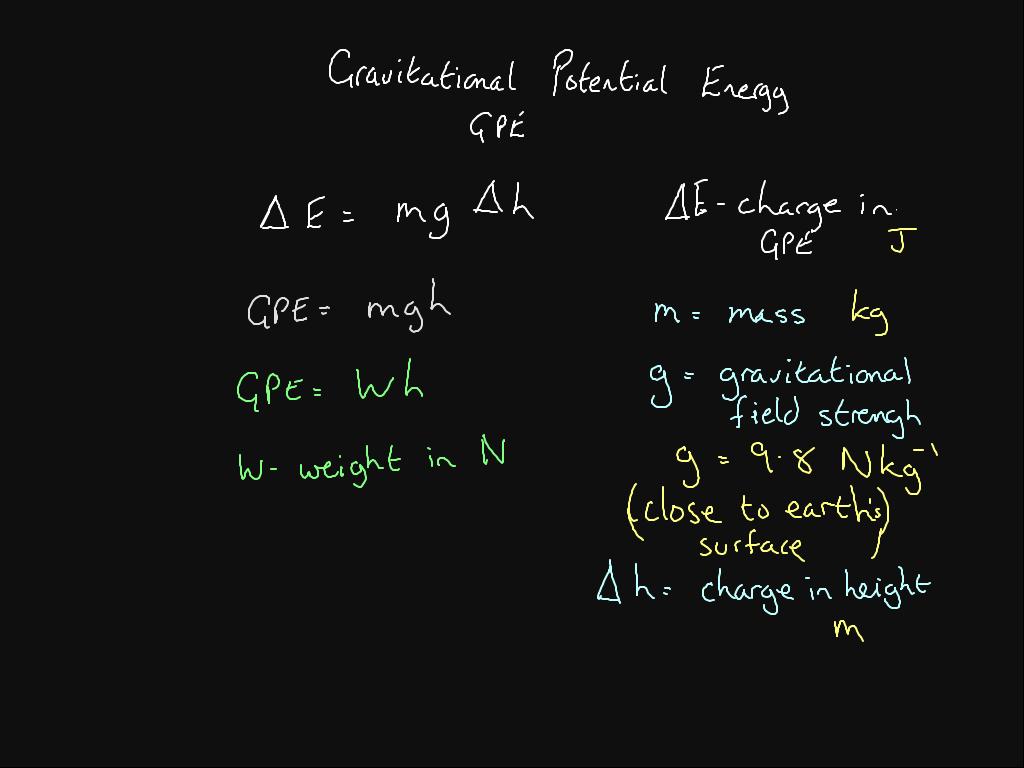 Gravitational Potential Energy
GPE
ΔE = mg Δh
GPE = mgh
GPE = Wh
W- weight in N
ΔE - change in
GPE J
m = mass kg
g = gravitational
field strengh
g = 9.8 Nkg⁻¹
(close to earth's
surface)
Δh = change in height
m